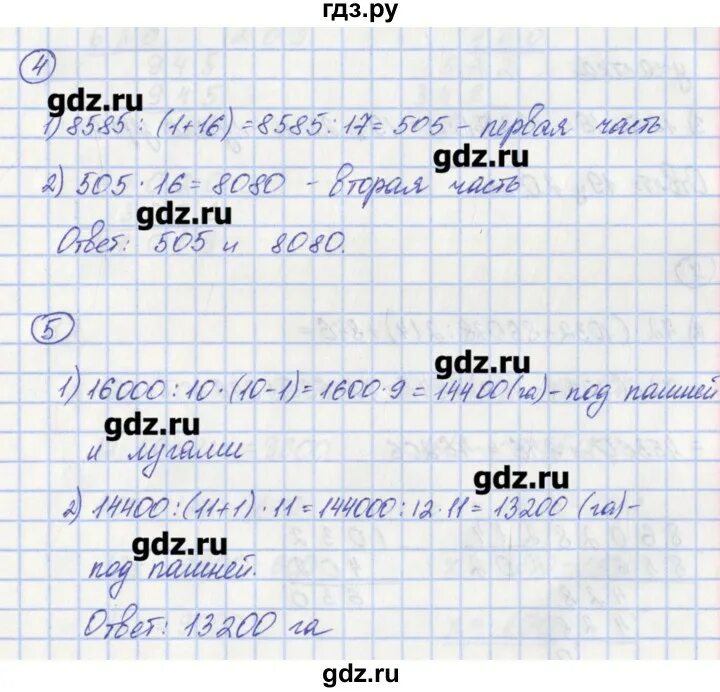 гдз.ру
4
gdz.ru
1) 8585 : (1+16) = 8585 : 17 = 505 - первая часть
gdz.ru
2) 505 · 16 = 8080 - вторая часть
gdz.ru
Ответ: 505 и 8080.
5
gdz.ru
1) 16000 : 10 · (10-1) = 1600 · 9 = 14400 (га) - под пашней
gdz.ru
и лугами
gdz.ru
2) 14400 : (11+1) · 11 = 144000 : 12 · 11 = 13200 (га) -
gdz.ru
под пашней.
Ответ: 13200 га
gdz.ru